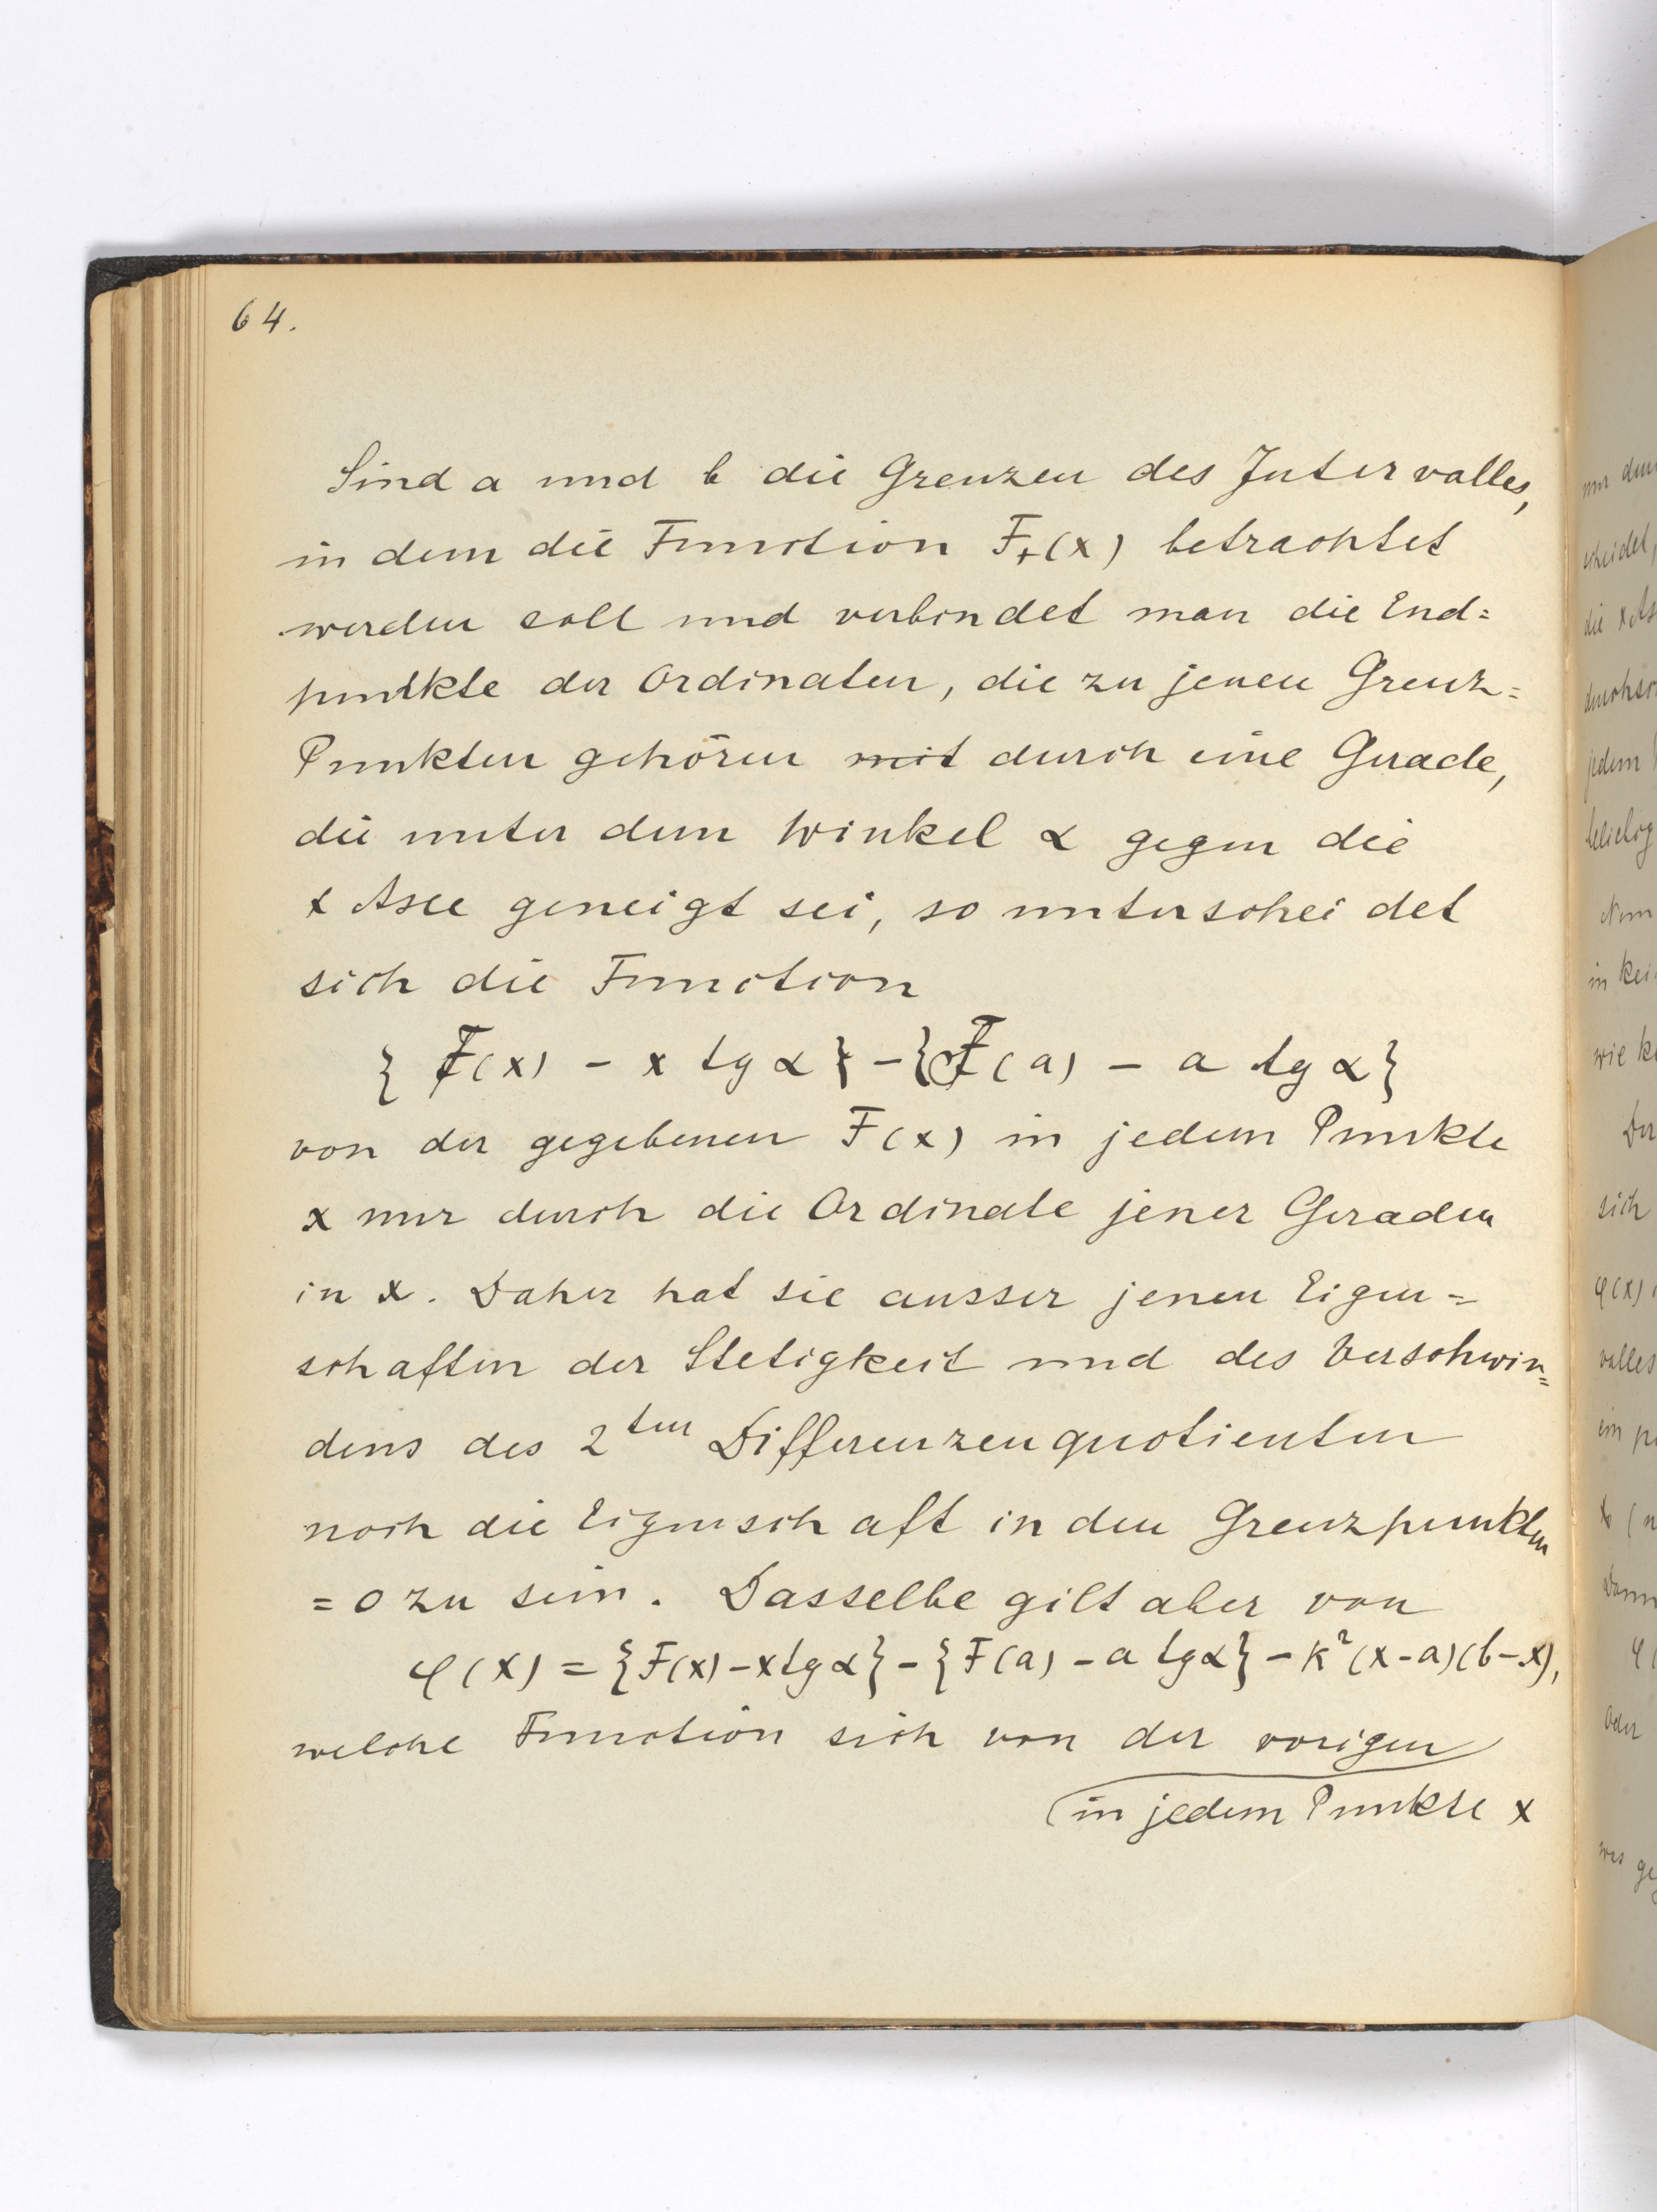 64.
Sind a und b die Grenzen des Intervalles,
in dem die Function F₊(x) betrachtet
werden soll und verbindet man die End=
punkte der Ordinaten, die zu jenen Grenz=
Punkten gehören mit durch eine Gerade,
die unter dem Winkel α gegen die
x Axe geneigt sei, so unterscheidet
sich die Function
{ F(x) – x tg α } – { F(a) – a tg α }
von der gegebenen F(x) in jedem Punkte
x nur durch die Ordinate jener Geraden
in x. Daher hat sie ausser jenen Eigen=
schaften der Stetigkeit und des Verschwin=
dens des 2ten Differenzenquotienten
noch die Eigenschaft in den Grenzpunkten
= 0 zu sein. Dasselbe gilt aber von
φ(x) = {F(x) – x tg α} – {F(a) – a tg α} – k²(x-a)(b-x),
welche Function sich von der vorigen
in jedem Punkte x